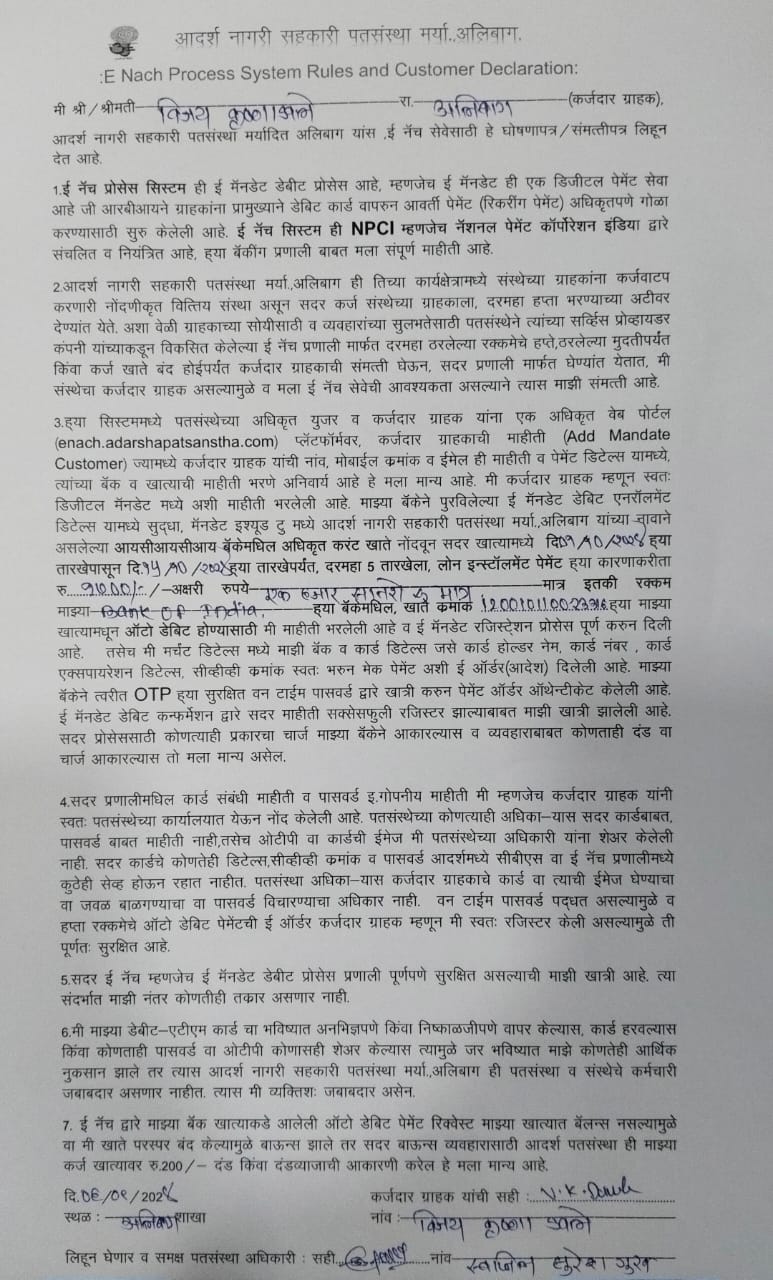 आदर्श नागरी सहकारी पतसंस्था मर्या.,अलिबाग.
:E Nach Process System Rules and Customer Declaration:
मी श्री/श्रीमती विजय कृष्णा रा. अलिबाग (कर्जदार ग्राहक),
आदर्श नागरी सहकारी पतसंस्था मर्यादित अलिबाग यांस ,ई नॅच सेवेसाठी हे घोषणापत्र/संमत्तीपत्र लिहून
देत आहे.
1.ई नॅच प्रोसेस सिस्टम ही ई मॅनडेट डेबीट प्रोसेस आहे, म्हणजेच ई मॅनडेट ही एक डिजीटल पेमेंट सेवा
आहे जी आरबीआयने ग्राहकांना प्रामुख्याने डेबिट कार्ड वापरुन आवर्ती पेमेंट (रिकरींग पेमेंट) अधिकृतपणे गोळा
करण्यासाठी सुरु केलेली आहे. ई नॅच सिस्टम ही NPCI म्हणजेच नॅशनल पेमेंट कॉर्पोरेशन इंडिया द्वारे
संचलित व नियंत्रित आहे, ह्या बॅकींग प्रणाली बाबत मला संपूर्ण माहीती आहे.
2.आदर्श नागरी सहकारी पतसंस्था मर्या.,अलिबाग ही तिच्या कार्यक्षेत्रामध्ये संस्थेच्या ग्राहकांना कर्जवाटप
करणारी नोंदणीकृत वित्तिय संस्था असून सदर कर्ज संस्थेच्या ग्राहकाला, दरमहा हप्ता भरण्याच्या अटीवर
देण्यांत येते. अशा वेळी ग्राहकाच्या सोयीसाठी व व्यवहारांच्या सुलभतेसाठी पतसंस्थेने त्यांच्या सर्व्हिस प्रोव्हायडर
कंपनी यांच्याकडून विकसित केलेल्या ई नॅच प्रणाली मार्फत दरमहा ठरलेल्या रक्कमेचे हप्ते,ठरलेल्या मुदतीपर्यंत
किंवा कर्ज खाते बंद होईपर्यंत कर्जदार ग्राहकाची संमत्ती घेऊन, सदर प्रणाली मार्फत घेण्यांत येतात, मी
संस्थेचा कर्जदार ग्राहक असल्यामुळे व मला ई नॅच सेवेची आवश्यकता असल्याने त्यास माझी संमत्ती आहे.
3.ह्या सिस्टममध्ये पतसंस्थेच्या अधिकृत युजर व कर्जदार ग्राहक यांना एक अधिकृत वेब पोर्टल
(enach.adarshapatsanstha.com) प्लॅटफॉर्मवर, कर्जदार ग्राहकाची माहीती (Add Mandate
Customer) ज्यामध्ये कर्जदार ग्राहक यांची नांव, मोबाईल क्रमांक व ईमेल ही माहीती व पेमेंट डिटेल्स यामध्ये,
त्यांच्या बॅक व खात्याची माहीती भरणे अनिवार्य आहे हे मला मान्य आहे. मी कर्जदार ग्राहक म्हणून स्वतः
डिजीटल मॅनडेट मध्ये अशी माहीती भरलेली आहे. माझ्या बॅकेने पुरविलेल्या ई मॅनडेट डेबिट एनरॉलमेंट
डिटेल्स यामध्ये सुद्धा, मॅनडेट इश्यूड टु मध्ये आदर्श नागरी सहकारी पतसंस्था मर्या.,अलिबाग यांच्या नावाने
असलेल्या आयसीआयसीआय बॅकेमधिल अधिकृत करंट खाते नोंदवून सदर खात्यामध्ये दि /10/ ह्या
तारखेपासून दि.15/10/ ह्या तारखेपर्यंत, दरमहा 5 तारखेला, लोन इन्स्टॉलमेंट पेमेंट ह्या कारणाकरीता
रु. /-अक्षरी रुपये एक हजार सातशे रु मात्र मात्र इतकी रक्कम
माझ्या Bank OF India. ह्या बॅकेमधिल, खाते क्रमांक ह्या माझ्या
खात्यामधून ऑटो डेबिट होण्यासाठी मी माहीती भरलेली आहे व ई मॅनडेट रजिस्ट्रेशन प्रोसेस पूर्ण करुन दिली
आहे. तसेच मी मर्चंट डिटेल्स मध्ये माझी बॅक व कार्ड डिटेल्स जसे कार्ड होल्डर नेम, कार्ड नंबर , कार्ड
एक्सपायरेशन डिटेल्स, सीव्हीव्ही क्रमांक स्वतः भरुन मेक पेमेंट अशी ई ऑर्डर(आदेश) दिलेली आहे. माझ्या
बॅकेने त्वरीत OTP ह्या सुरक्षित वन टाईम पासवर्ड द्वारे खात्री करुन पेमेंट ऑर्डर ऑथेन्टीकेट केलेली आहे.
ई मॅनडेट डेबिट कन्फर्मेशन द्वारे सदर माहीती सक्सेसफुली रजिस्टर झाल्याबाबत माझी खात्री झालेली आहे.
सदर प्रोसेससाठी कोणत्याही प्रकारचा चार्ज माझ्या बॅकेने आकारल्यास व व्यवहाराबाबत कोणताही दंड वा
चार्ज आकारल्यास तो मला मान्य असेल.
4.सदर प्रणालीमधिल कार्ड संबंधी माहीती व पासवर्ड इ.गोपनीय माहीती मी म्हणजेच कर्जदार ग्राहक यांनी
स्वतः पतसंस्थेच्या कार्यालयात येऊन नोंद केलेली आहे. पतसंस्थेच्या कोणत्याही अधिका–यास सदर कार्डबाबत,
पासवर्ड बाबत माहीती नाही,तसेच ओटीपी वा कार्डची ईमेज मी पतसंस्थेच्या अधिकारी यांना शेअर केलेली
नाही. सदर कार्डचे कोणतेही डिटेल्स,सीव्हीव्ही क्रमांक व पासवर्ड आदर्शमध्ये सीबीएस वा ई नॅच प्रणालीमध्ये
कुठेही सेव्ह होऊन रहात नाहीत. पतसंस्था अधिका–यास कर्जदार ग्राहकाचे कार्ड वा त्याची ईमेज घेण्याचा
वा जवळ बाळगण्याचा वा पासवर्ड विचारण्याचा अधिकार नाही. वन टाईम पासवर्ड पद्धत असल्यामुळे व
हप्ता रक्कमेचे ऑटो डेबिट पेमेंटची ई ऑर्डर कर्जदार ग्राहक म्हणून मी स्वतः रजिस्टर केली असल्यामुळे ती
पूर्णतः सुरक्षित आहे.
5.सदर ई नॅच म्हणजेच ई मॅनडेट डेबीट प्रोसेस प्रणाली पूर्णपणे सुरक्षित असल्याची माझी खात्री आहे. त्या
संदर्भात माझी नंतर कोणतीही तक्रार असणार नाही.
6.मी माझ्या डेबीट–एटीएम कार्ड चा भविष्यात अनभिज्ञपणे किंवा निष्काळजीपणे वापर केल्यास, कार्ड हरवल्यास
किंवा कोणताही पासवर्ड वा ओटीपी कोणासही शेअर केल्यास त्यामुळे जर भविष्यात माझे कोणतेही आर्थिक
नुकसान झाले तर त्यास आदर्श नागरी सहकारी पतसंस्था मर्या.,अलिबाग ही पतसंस्था व संस्थेचे कर्मचारी
जबाबदार असणार नाहीत. त्यास मी व्यक्तिशः जबाबदार असेन.
7. ई नॅच द्वारे माझ्या बॅक खात्याकडे आलेली ऑटो डेबिट पेमेंट रिक्वेस्ट माझ्या खात्यात बॅलंन्स नसल्यामुळे
वा मी खाते परस्पर बंद केल्यामुळे बाऊन्स झाले तर सदर बाऊन्स व्यवहारासाठी आदर्श पतसंस्था ही माझ्या
कर्ज खात्यावर रु.200/– दंड किंवा दंडव्याजाची आकारणी करेल हे मला मान्य आहे.
दि. /202 कर्जदार ग्राहक यांची सही :
स्थळ :– अलिबाग शाखा नांव :– विजय कृष्णा
लिहून घेणार व समक्ष पतसंस्था अधिकारी : सही. नांव स्वप्निल सुरेश